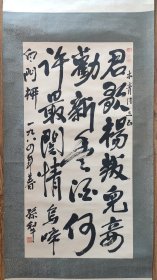 君歌楊叛兒妾
勸新豐酒何
許最關情烏啼
白門柳
一九八四年春